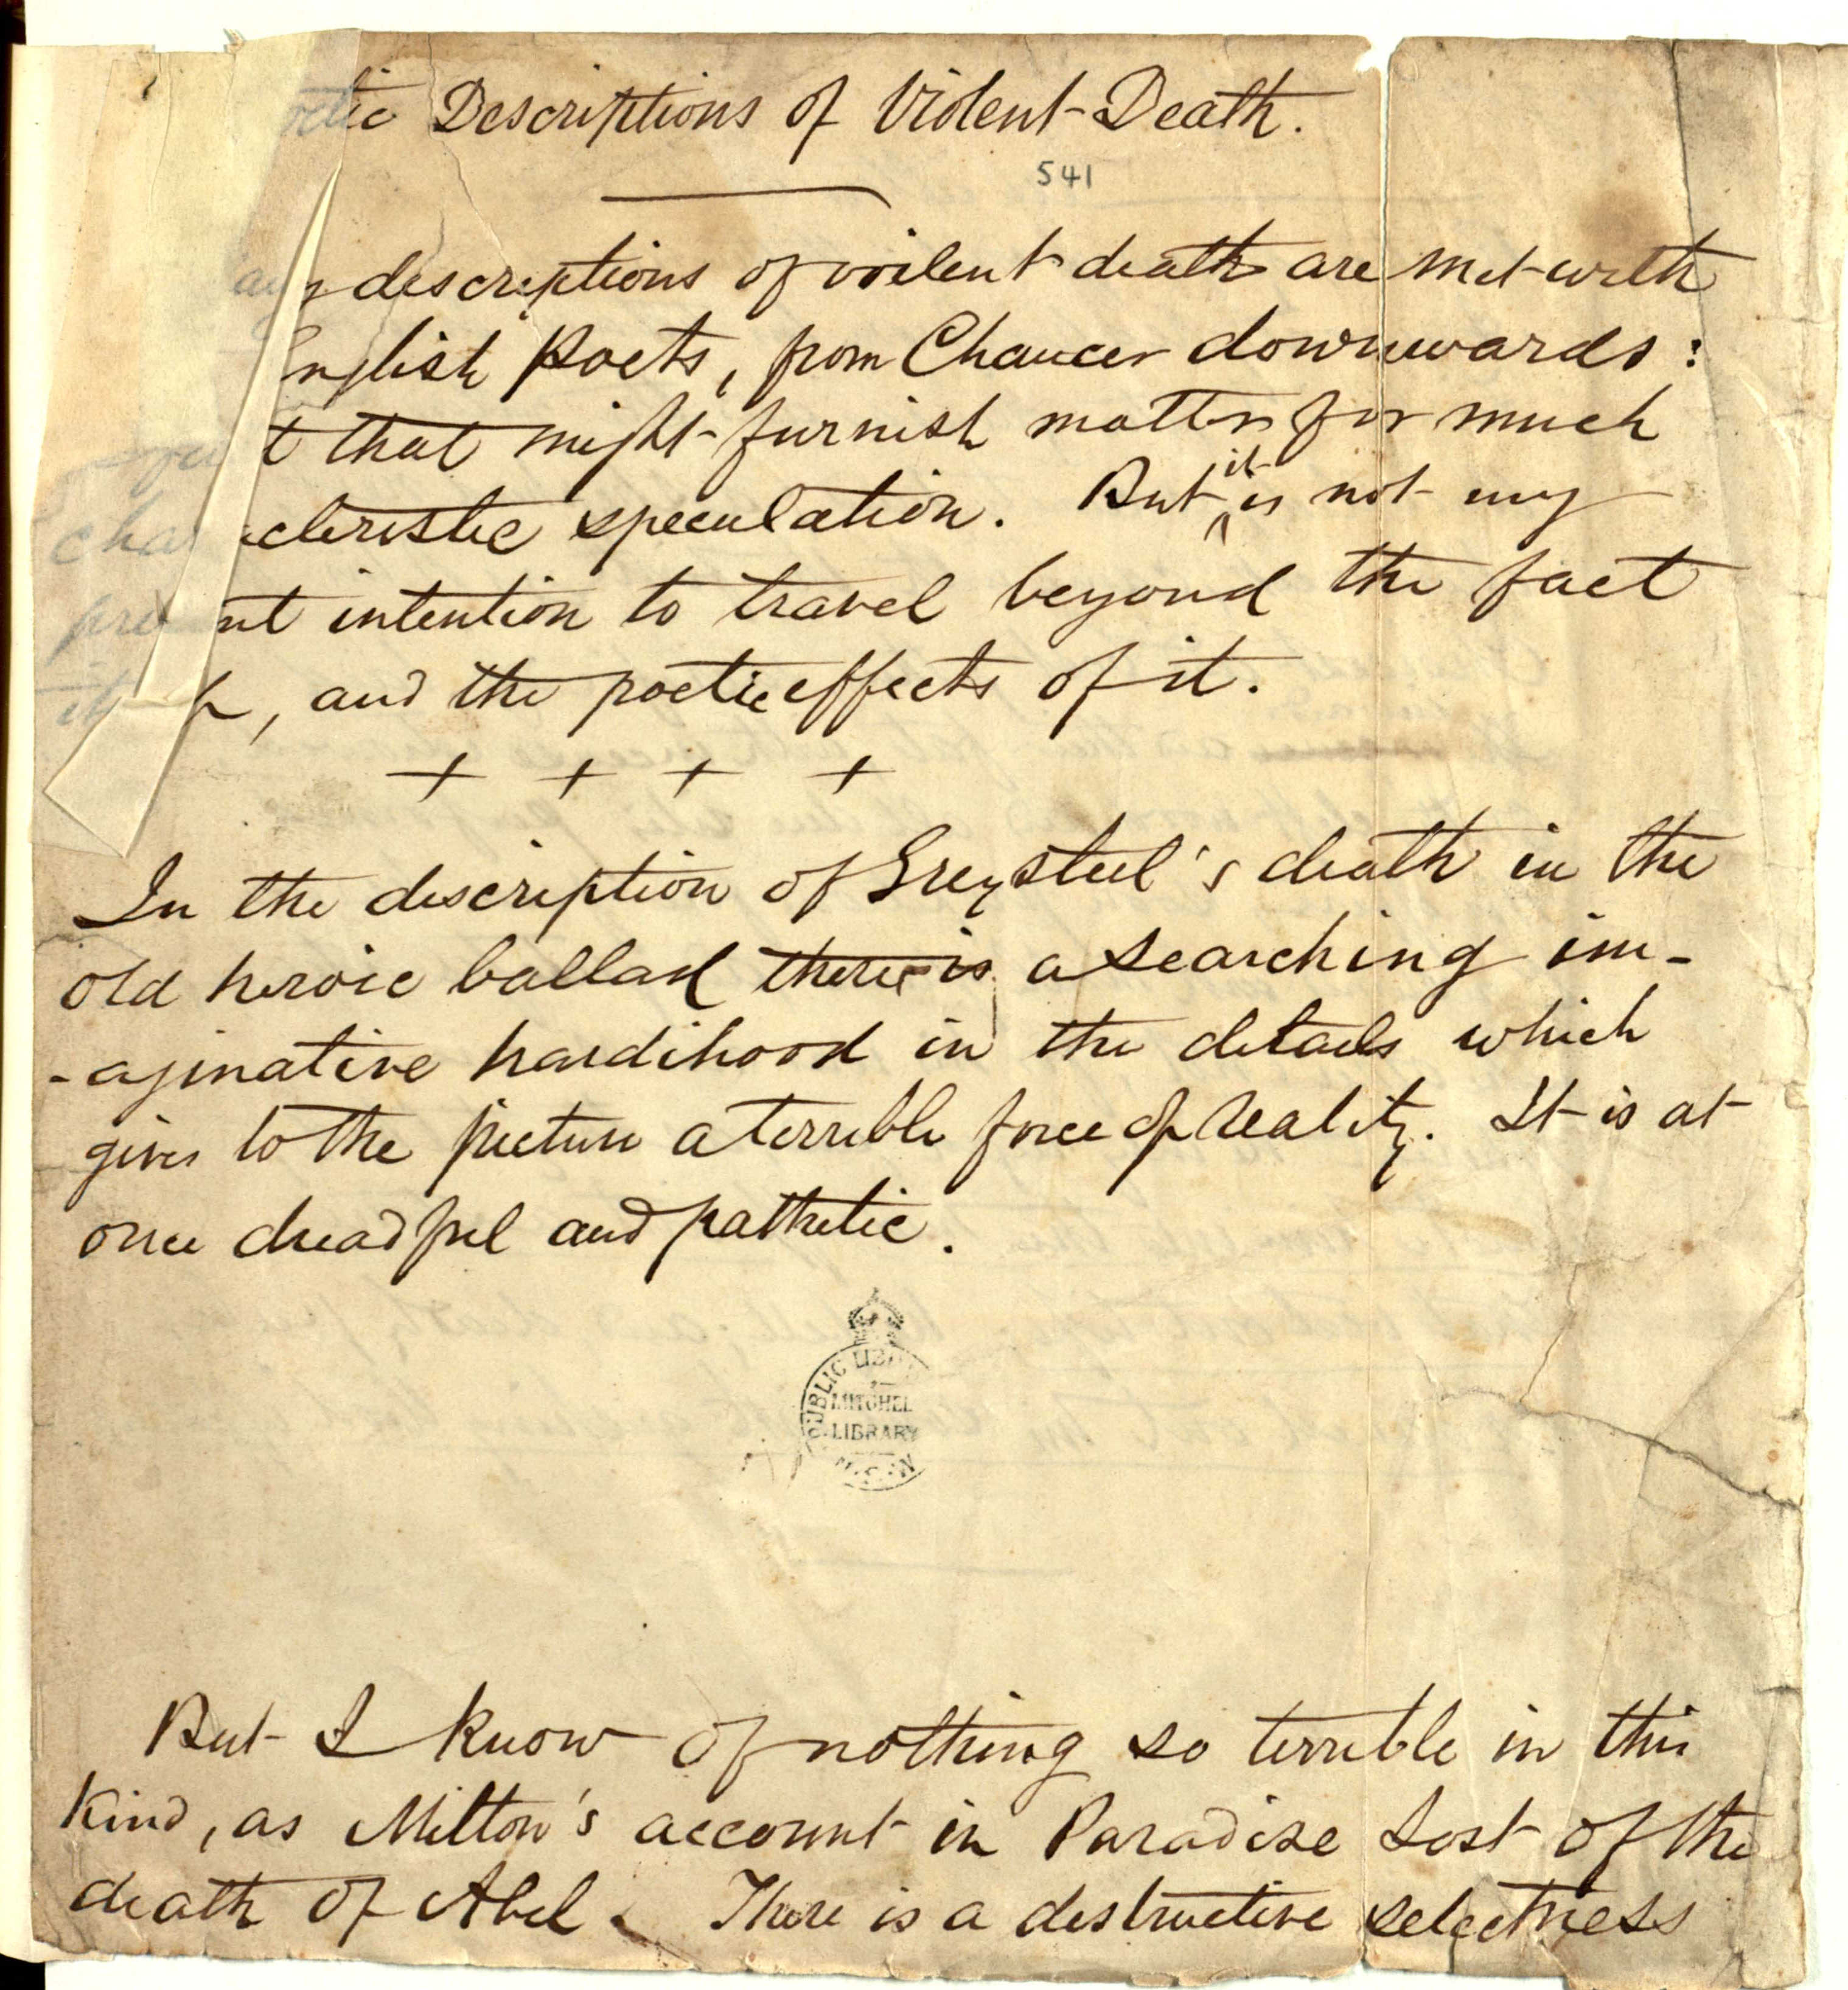 etic Descriptions of Violent Death.
541
any descriptions of voilent death are met with
English Poets, from Chaucer downwards:
t that might furnish matter for much
characteristic speculation. But it is not my
present intention to travel beyond the fact
it, and the poetic effects of it.
+ + + +
In the description of Greysteel's death in the
old heroic ballad there is a searching im-
-aginative hardihood in the details which
gives to the picture a terrible force of reality. It is at
once dreadful and pathetic.
PUBLIC LIBR
MITCHEL
LIBRARY
N.S.W
But I know of nothing so terrible in this
Kind, as Milton's account in Paradise Lost of the
death of Abel. There is a destructive selectness